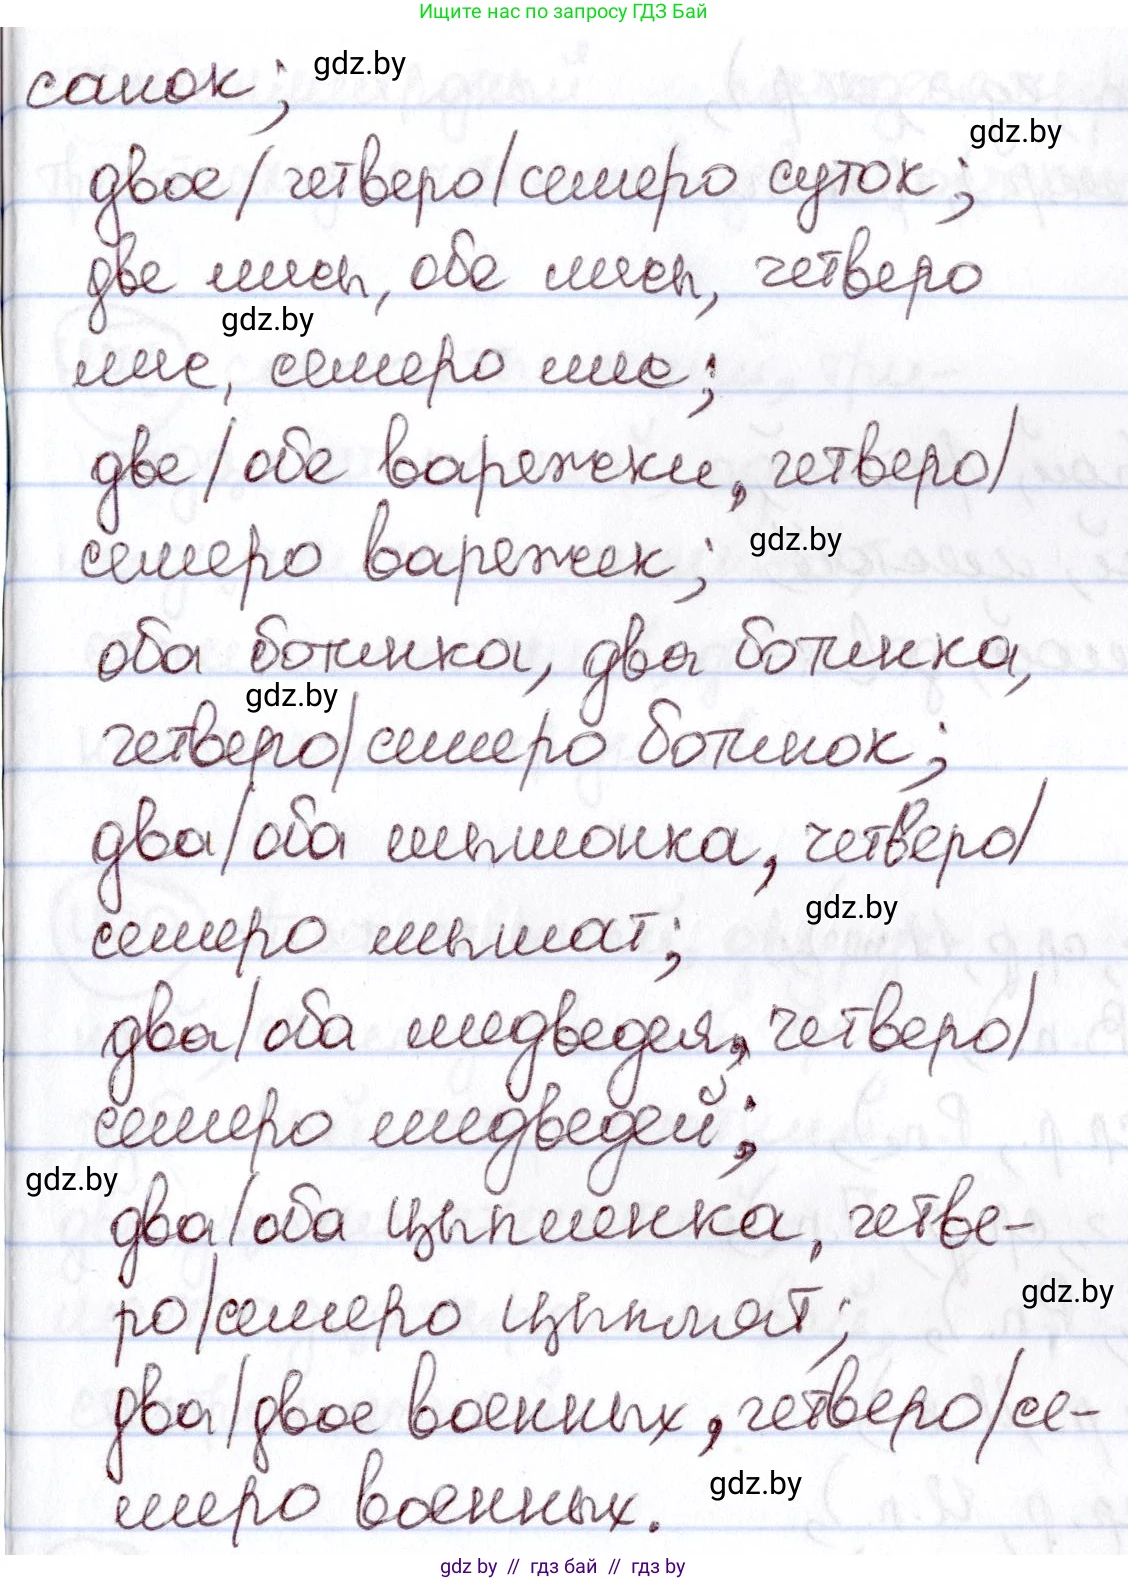 Ищите нас по запросу ГДЗ Бай
санок; gdz.by
gdz.by
двое/четверо/семеро суток;
две лисы, обе лисы, четверо
gdz.by
лис, семеро лис;
две/обе варежки, четверо/
семеро варежек; gdz.by
оба ботинка, два ботинка,
gdz.by
четверо/семеро ботинок;
два/оба мышонка, четверо/
gdz.by
семеро мышат;
два/оба медведя, четверо/
семеро медведей;
gdz.by
два/оба цыпленка, четве-
gdz.by
ро/семеро цыплят;
два/двое военных, четверо/се-
gdz.by
меро военных.
gdz.by // гдз бай // gdz by